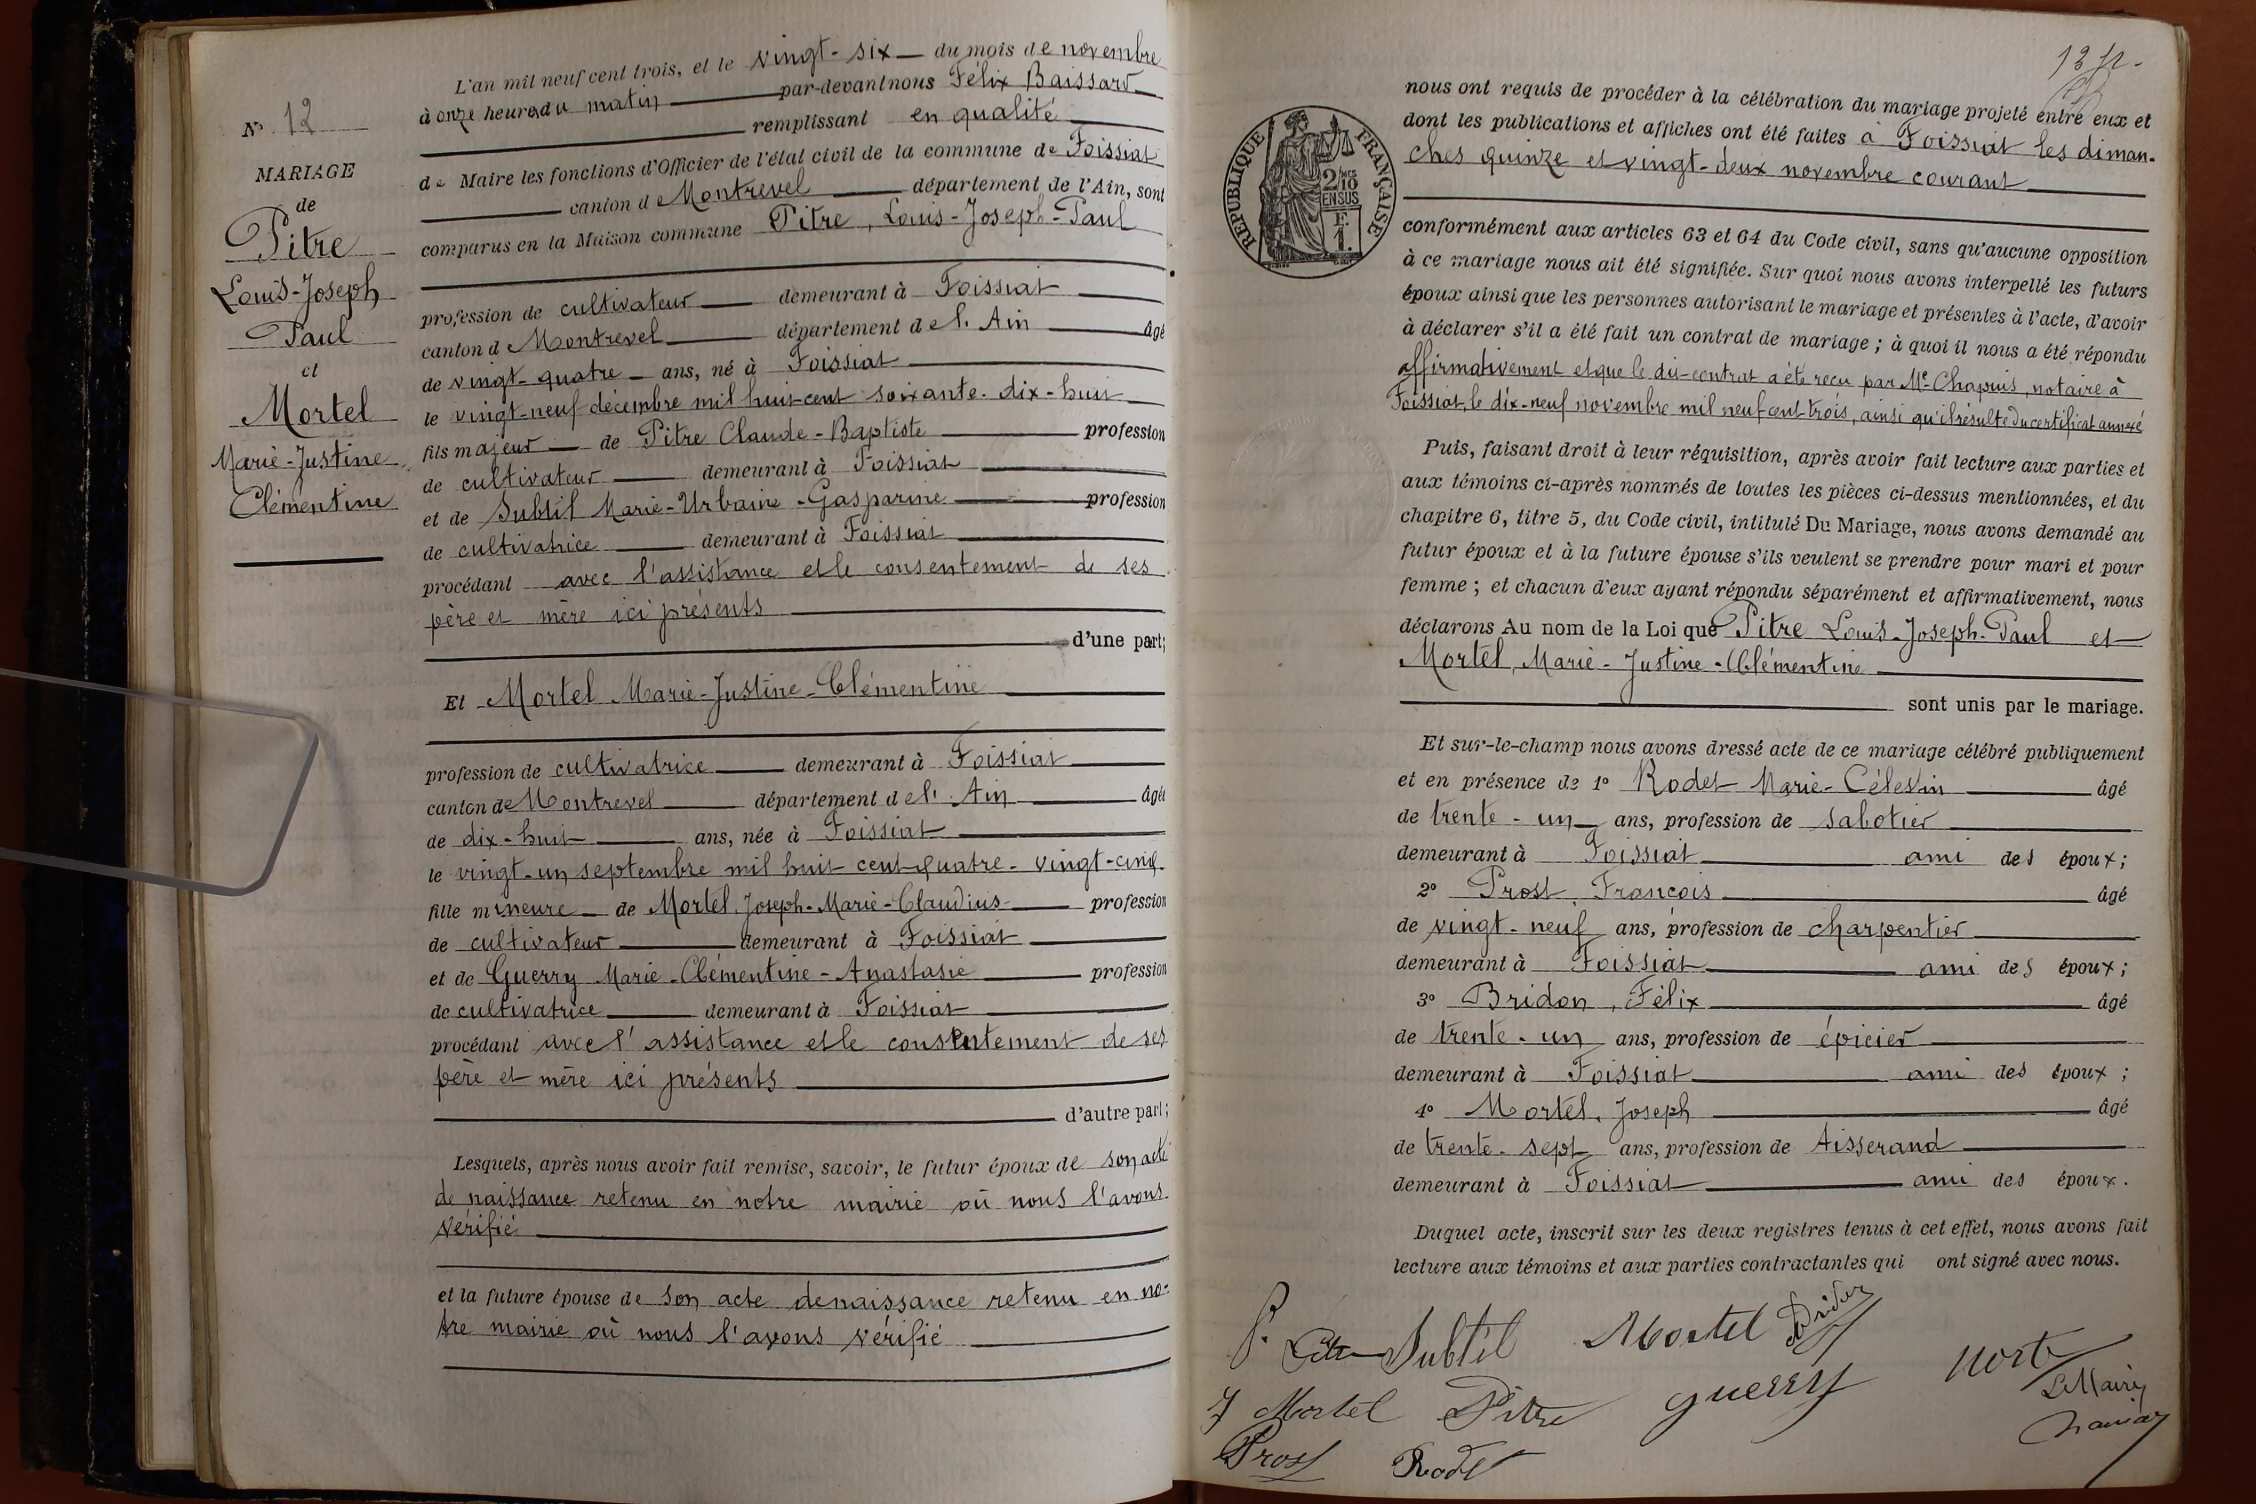 N° 12
MARIAGE
de
Pitre
Louis-Joseph
Paul
et
Mortel
Marie-Justine
Clémentine
L'an mil neuf cent trois, et le vingt-six du mois de novembre
à onze heures du matin par-devant nous Félix Baissard
remplissant en qualité
de Maire les fonctions d'Officier de l'état civil de la commune de Foissiat
canton de Montrevel département de l'Ain, sont
comparus en la Maison commune Pitre, Louis-Joseph-Paul
profession de cultivateur demeurant à Foissiat
canton de Montrevel département de l'Ain âgé
de vingt-quatre ans, né à Foissiat
le vingt-neuf décembre mil huit cent soixante-dix-huit
fils majeur de Pitre Claude-Baptiste profession
de cultivateur demeurant à Foissiat
et de Subtil Marie-Urbaine-Gasparine profession
de cultivatrice demeurant à Foissiat
procédant avec l'assistance et le consentement de ses
père et mère ici présents
d'une part;
Et Mortel Marie-Justine-Clémentine
profession de cultivatrice demeurant à Foissiat
canton de Montrevel département de l'Ain âgée
de dix-huit ans, née à Foissiat
le vingt-un septembre mil huit cent quatre-vingt-cinq.
fille mineure de Mortel Joseph-Marie-Claudius profession
de cultivateur demeurant à Foissiat
et de Guerry Marie-Clémentine-Anastasie profession
de cultivatrice demeurant à Foissiat
procédant avec l'assistance et le consentement de ses
père et mère ici présents
d'autre part;
Lesquels, après nous avoir fait remise, savoir, le futur époux de son acte
de naissance retenu en notre mairie où nous l'avons
vérifié
et la future épouse de son acte de naissance retenu en no-
tre mairie où nous l'avons vérifié
RÉPUBLIQUE FRANÇAISE
2/10
EN SUS
F.
1.
nous ont requis de procéder à la célébration du mariage projeté entre eux et
dont les publications et affiches ont été faites à Foissiat les diman-
ches quinze et vingt-deux novembre courant
conformément aux articles 63 et 64 du Code civil, sans qu'aucune opposition
à ce mariage nous ait été signifiée. Sur quoi nous avons interpellé les futurs
époux ainsi que les personnes autorisant le mariage et présentes à l'acte, d'avoir
à déclarer s'il a été fait un contrat de mariage ; à quoi il nous a été répondu
affirmativement et que le dit contrat a été reçu par Me Chapuis, notaire à
Foissiat, le dix-neuf novembre mil neuf cent trois, ainsi qu'il résulte du certificat annexé
Puis, faisant droit à leur réquisition, après avoir fait lecture aux parties et
aux témoins ci-après nommés de toutes les pièces ci-dessus mentionnées, et du
chapitre 6, titre 5, du Code civil, intitulé Du Mariage, nous avons demandé au
futur époux et à la future épouse s'ils veulent se prendre pour mari et pour
femme ; et chacun d'eux ayant répondu séparément et affirmativement, nous
déclarons Au nom de la Loi que Pitre Louis-Joseph-Paul et
Mortel, Marie-Justine-Clémentine
sont unis par le mariage.
Et sur-le-champ nous avons dressé acte de ce mariage célébré publiquement
et en présence de 1° Rodet Marie-Célestin âgé
de trente-un ans, profession de sabotier
demeurant à Foissiat ami des époux;
2° Prost, François âgé
de vingt-neuf ans, profession de charpentier
demeurant à Foissiat ami des époux;
3° Bridon, Félix âgé
de trente-un ans, profession de épicier
demeurant à Foissiat ami des époux;
4° Mortel, Joseph âgé
de trente-sept ans, profession de tisserand
demeurant à Foissiat ami des époux.
Duquel acte, inscrit sur les deux registres tenus à cet effet, nous avons fait
lecture aux témoins et aux parties contractantes qui ont signé avec nous.
P. Pitre Subtil Mortel Bridon
J Mortel Pitre Guerry
Le Maire
Prost Rodet